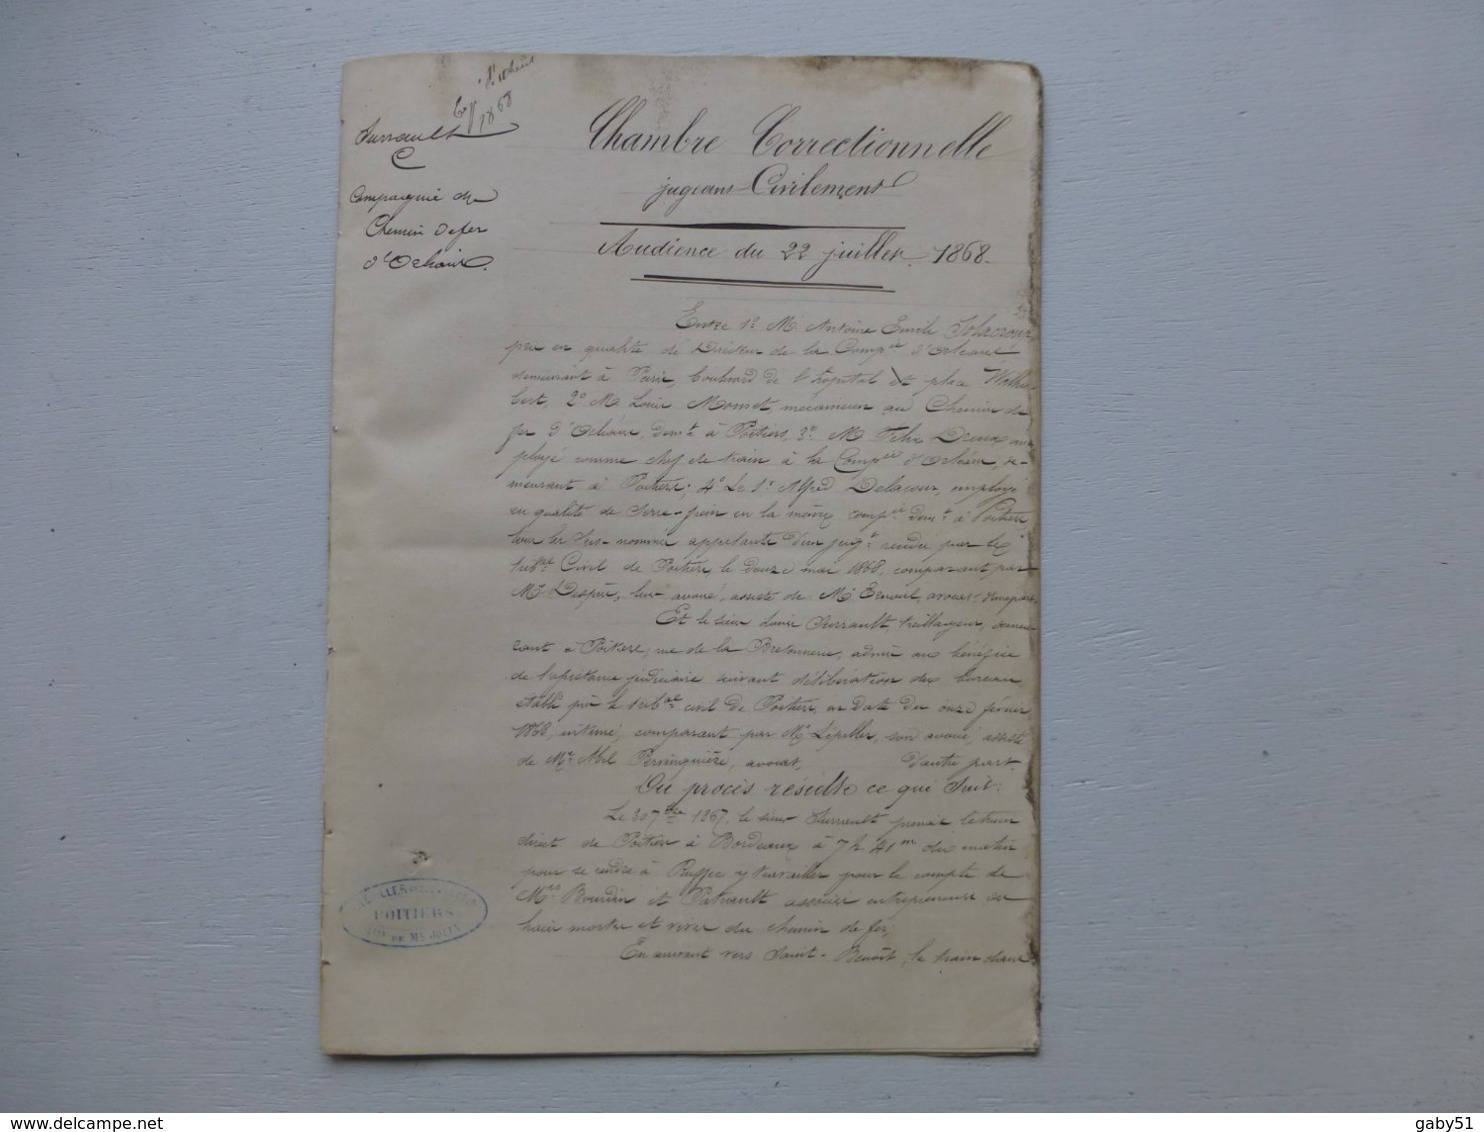 1868
Surrault
C
Compagnie du
Chemin de fer
d'Orléans
Chambre Correctionnelle
jugeant Civilement
Audience du 22 juillet 1868.
Entre 1º M. Antoine Emile Solacroup
pris en qualité de Directeur de la Compie d'Orléans
demeurant à Paris, boulevard de l'hopital et place Walhu-
bert, 2º M. Louis Monset, mécanicien au Chemin de
fer d'Orléans, demt à Poitiers, 3º M Felix Dreux em
ployé comme chef de train à la Compie d'Orléans, de-
meurant à Poitiers; 4º Le Sr Alfred Delacour, employé
en qualité de Serre-frein en la même compie demt à Poitiers
tous les sus-nommés appelants d'un jugt rendu par le
tribal Civil de Poitiers, le douze mai 1868, comparant par
Me Despin, leur avoué, assisté de Me Ernoul, avocat, d'une part.
Et le sieur Louis Surrault, treillageur, demeu-
rant à Poitiers, rue de la Bretonnerie, admis au bénéfice
de l'assistance judiciaire suivant délibération du bureau
établi près le tribal civil de Poitiers, en date du onze février
1868, intimé, comparant par Me Lépillier, son avoué, assisté
de Me Abel Pervinquière, avocat, d'autre part.
Du procès résulte ce qui suit:
Le 30 7bre 1867, le sieur Surrault prenait le train
direct de Poitiers à Bordeaux à 7 h 41 m du matin
pour se rendre à Ruffec y travailler pour le compte de
Mrs Bourdin et Patrault associés entrepreneurs de
haies mortes et vives du chemin de fer;
En arrivant vers Saint-Benoît, le train dans
POITIERS
gaby51